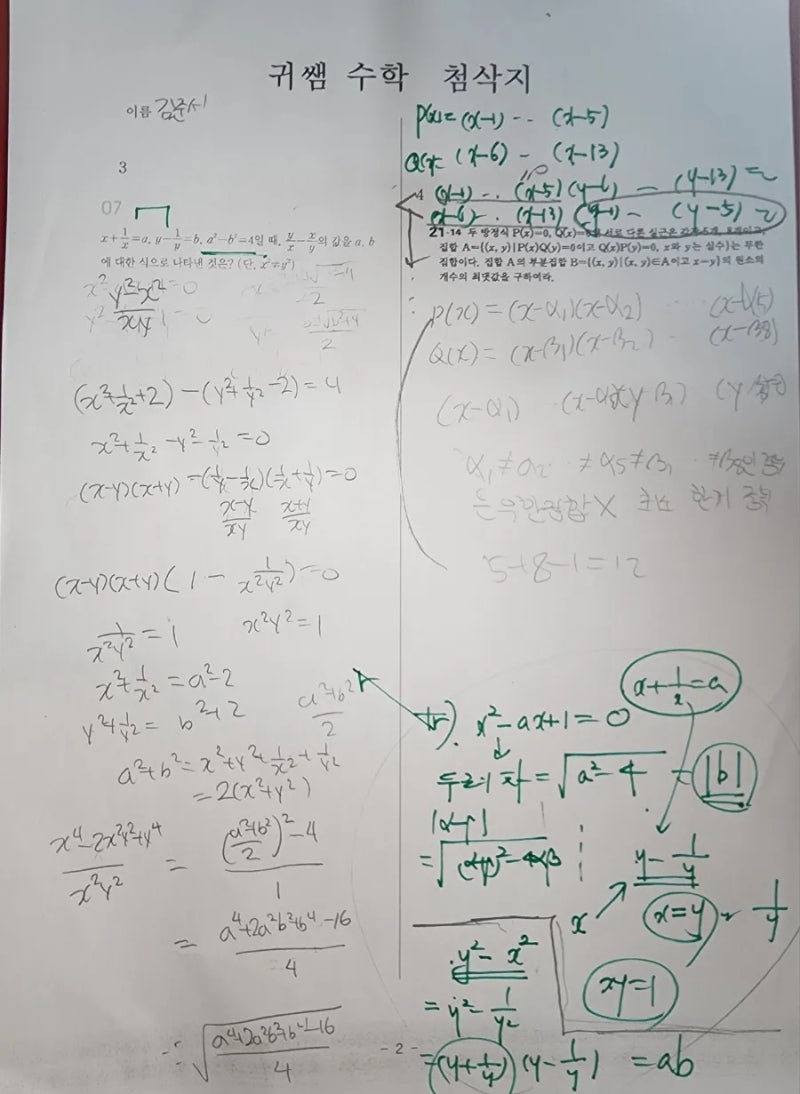 귀쌤 수학 첨삭지
이름 김준서
3
07
x+1/x=a, y-1/y=b, a²-b²=4일 때, y/x-x/y의 값을 a, b
에 대한 식으로 나타낸 것은? (단, x²≠y²)
y²-x²/xy
(x²+1/x²+2)-(y²+1/y²-2)=4
x²+1/x²-y²-1/y²=0
(x-y)(x+y)-(1/y-1/x)(1/x+1/y)=0
x-y/xy x+y/xy
(x-y)(x+y)(1-1/x²y²)=0
1/x²y²=1 x²y²=1
x²+1/x²=a²-2
y²+1/y²=b²+2
a²+b²/2
a²+b²=x²+y²+1/x²+1/y²
=2(x²+y²)
x⁴-2x²y²+y⁴/x²y² = (a²+b²/2)²-4/1
= a⁴+2a²b²+b⁴-16/4
∴ √a⁴+2a²b²+b⁴-16/4
P(x)=(x-1)--(x-5)
Q(x)=(x-6)-(x-13)
4
(x-1)--(x-5)(y-6)-(y-13)=
(x-6)--(x-13)(y-1)-(y-5)=
21-14 두 방정식 P(x)=0, Q(x)=0의 서로 다른 실근은 각각 5개, 8개이고,
집합 A={(x, y)|P(x)Q(y)=0이고 Q(x)P(y)=0, x와 y는 실수}는 무한
집합이다. 집합 A의 부분집합 B={(x, y)|(x, y)∈A이고 x=y}의 원소의
개수의 최댓값을 구하여라.
P(x)=(x-α₁)(x-α₂) (x-α5)
Q(x)=(x-β₁)(x-β₂) (x-β8)
(x-α₁) (x-α5)(y-β₁)
α₁≠α₂ ≠α5≠β₁
은 무한집합X 최소 한개 중복
5+8-1=12
x+1/x=a
x²-ax+1=0
두근의 차=√a²-4=|b|
|α-β|
=√(α+β)²-4αβ
y-1/y
x x=y, -1/y
xy=1
y²-x²
=y²-1/y²
=(y+1/y)(y-1/y)=ab
- 2 -